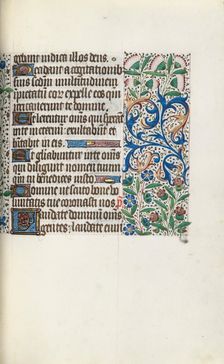 gebunt indica illos deus.
Decidant a cogitationib
suis scdm multitudinem
impietatū eor expelle eos qm
irritauerunt te domine.
Et letentur oms qui sperāt
in te in eternū exultabūt et
habitabis in eis.
Et gloriabuntur in te oms
qui diligunt nomen tuum
qm tu benedices iusto.
Domine ut scuto bone vo
luntatis tue coronasti nos
Laudate dominū oms
gentes laudate eum